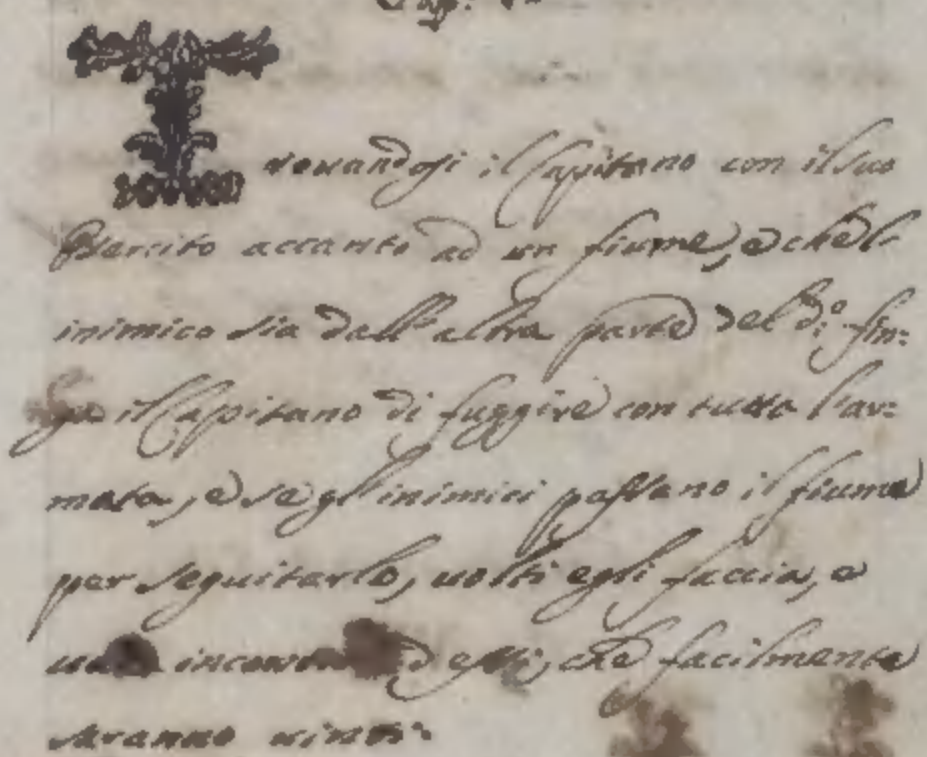 Cap.
Trouandosi il Capitano con il suo
Esercito accanto ad un fiume, e che l'
inimico sia dall'altra parte del d.º fin=
ga il Capitano di fuggire con tutta l'ar=
mata, e se gl'inimici passano il fiume
per seguitarlo, uolti egli faccia, e
uada incontro ad essi, che facilmente
saranno uinti.